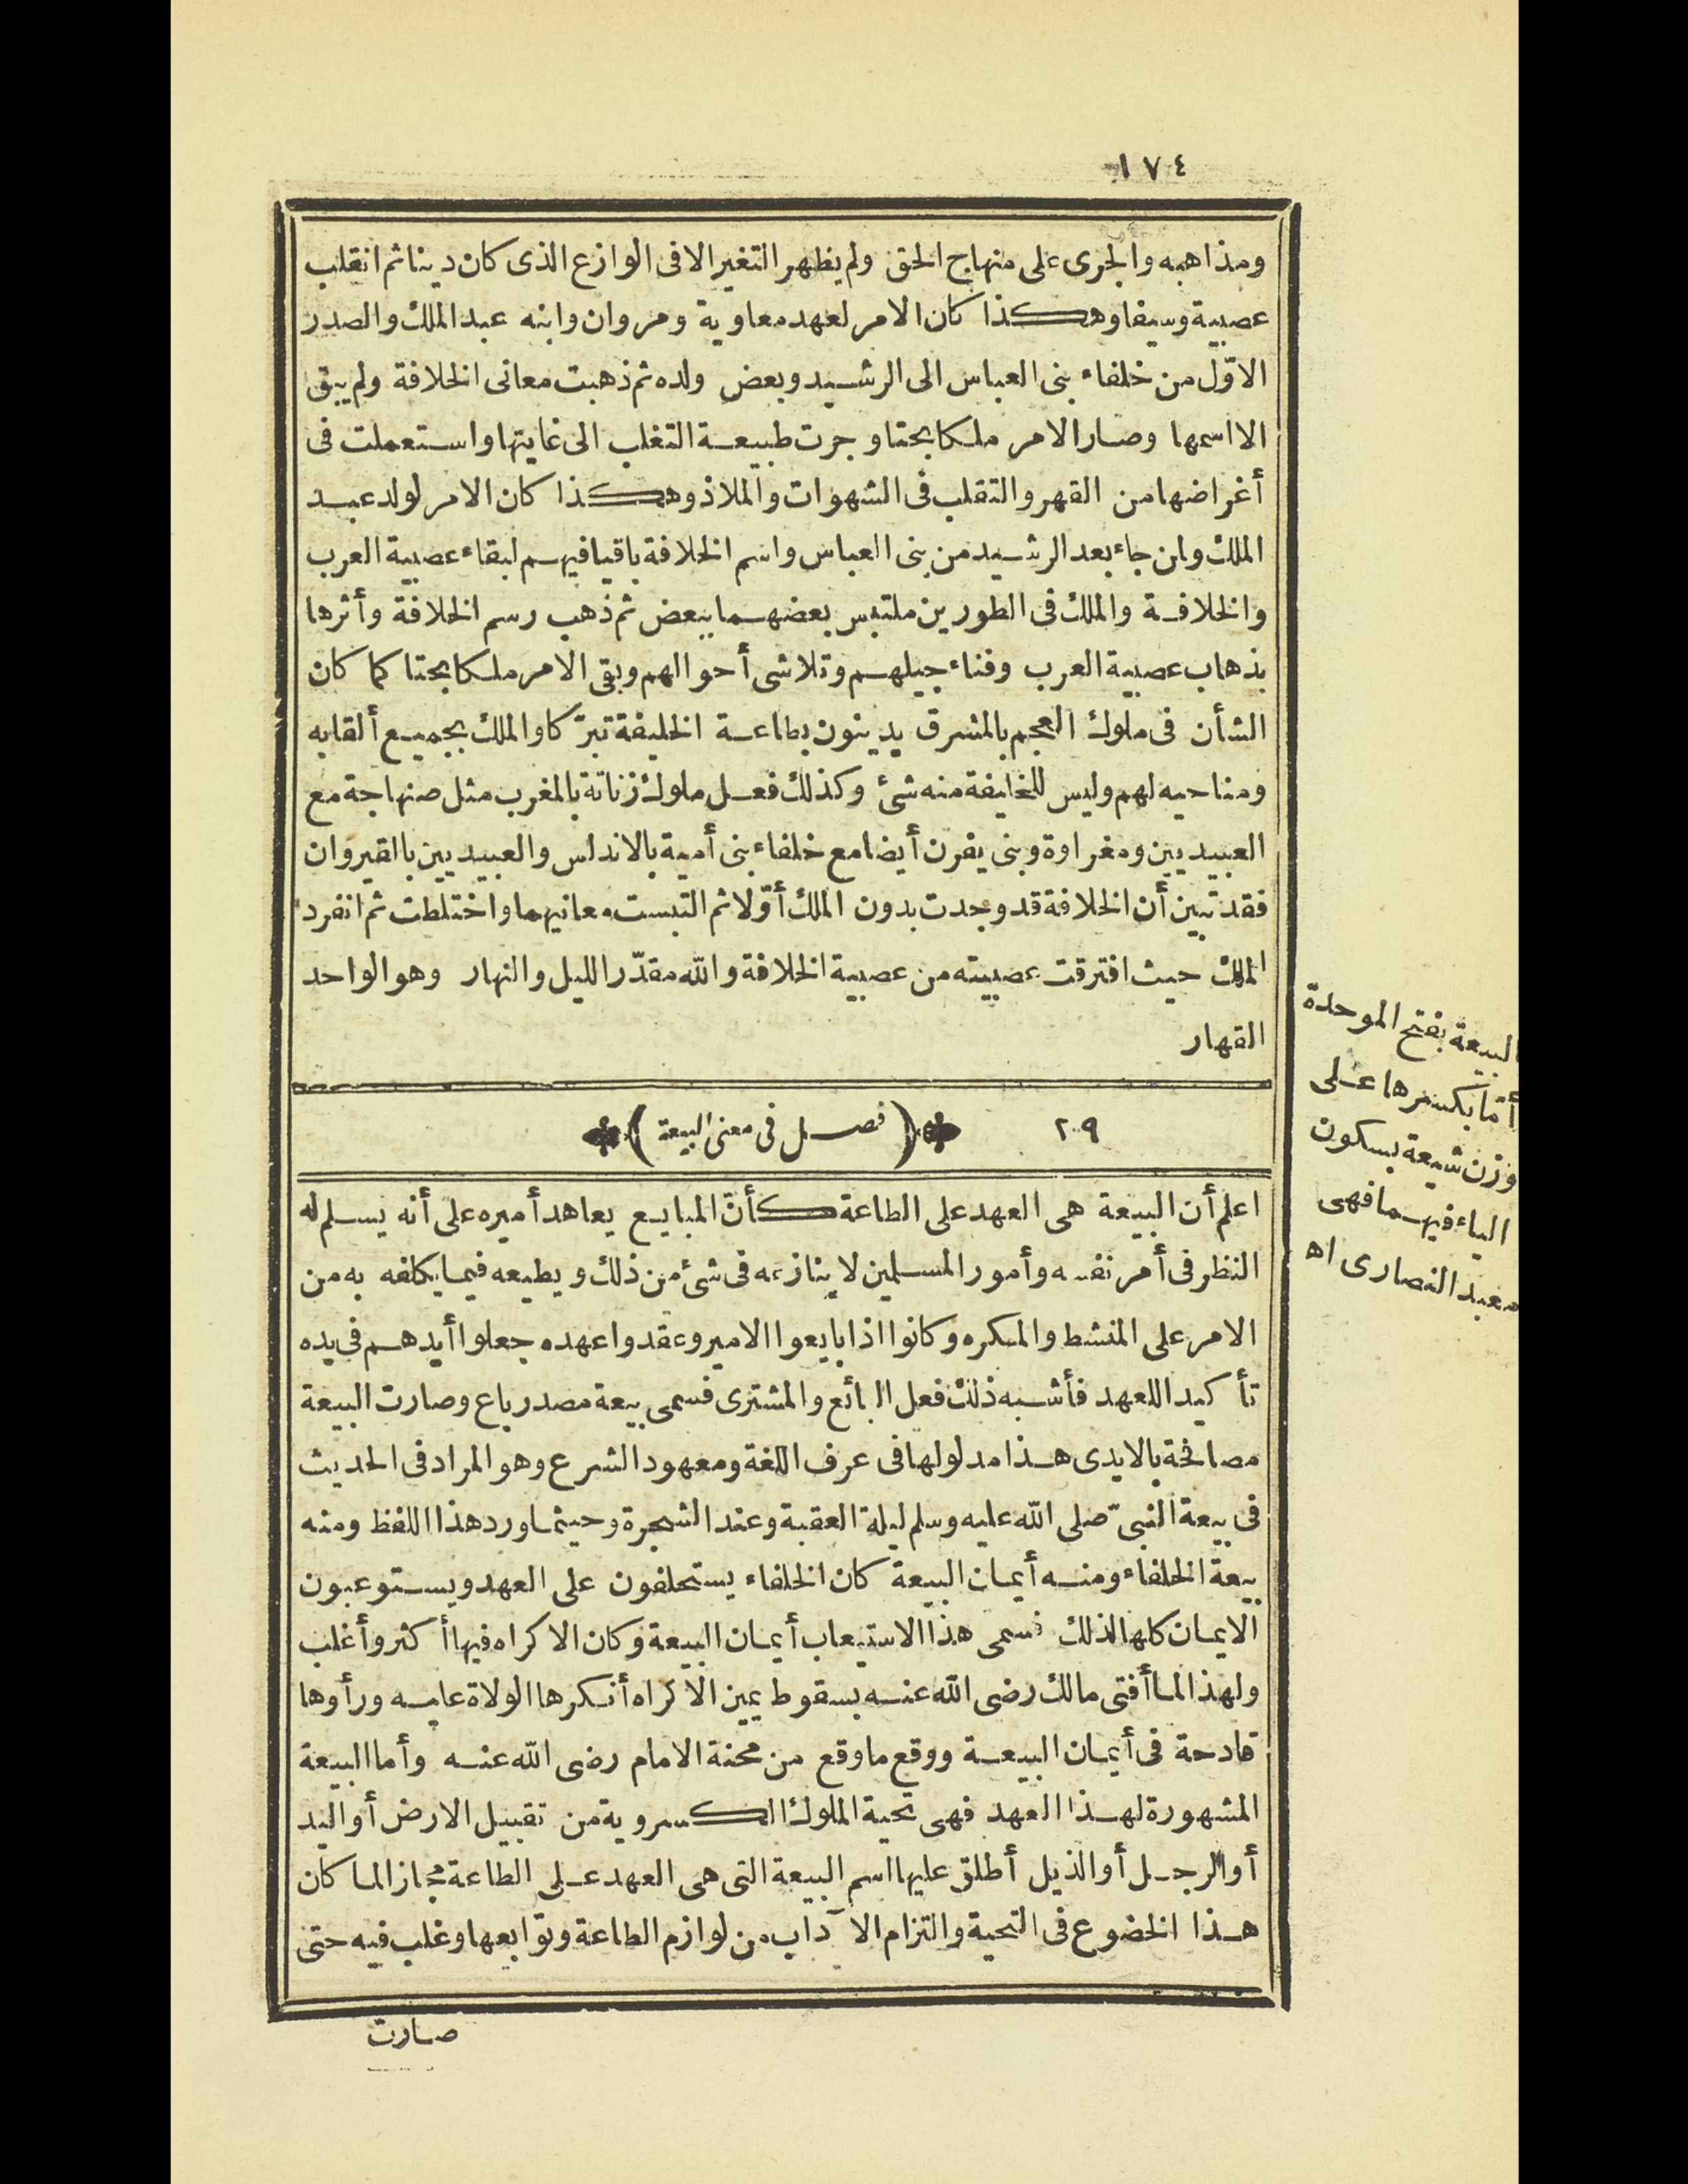 ١٧٤
ومذاهبه والجرى على منهاج الحق ولم يظهر التغير الا فى الوازع الذى كان دينا ثم انقلب
عصبية وسيفا وهكذا كان الامر لعهد معاوية ومروان وابنه عبد الملك والصدر
الاوّل من خلفاء بنى العباس الى الرشيد وبعض ولده ثم ذهبت معانى الخلافة ولم يبق
الا اسمها وصار الامر ملكا بحتا وجرت طبيعة التغلب الى غايتها واستعملت فى
أغراضها من القهر والتقلب فى الشهوات والملاذ وهكذا كان الامر لولد عبد
الملك ولمن جاء بعد الرشيد من بنى العباس واسم الخلافة باقيا فيهم لبقاء عصبية العرب
والخلافة والملك فى الطورين ملتبس بعضهما ببعض ثم ذهب رسم الخلافة وأثرها
بذهاب عصبية العرب وفناء جيلهم وتلاشى أحوالهم وبقى الامر ملكا بحتا كما كان
الشأن فى ملوك العجم بالمشرق يدينون بطاعة الخليفة تبرّكا والملك بجميع ألقابه
ومناحيه لهم وليس للخليفة منه شئ وكذلك فعل ملوك زناتة بالمغرب مثل صنهاجة مع
العبيديين ومغراوة وبنى يفرن أيضا مع خلفاء بنى أمية بالاندلس والعبيديين بالقيروان
فقد تبين أن الخلافة قد وجدت بدون الملك أوّلا ثم التبست معانيهما واختلطت ثم انفرد
الملك حيث افترقت عصبيته من عصبية الخلافة والله مقدّر الليل والنهار وهو الواحد
القهار
٢٩ (فصل فى معنى البيعة)
اعلم أن البيعة هى العهد على الطاعة كأنّ المبايع يعاهد أميره على أنه يسلم له
النظر فى أمر نفسه وأمور المسلمين لا ينازعه فى شئ من ذلك ويطيعه فيما يكلفه به من
الامر على المنشط والمكره وكانوا اذا بايعوا الامير وعقدوا عهده جعلوا أيدهم فى يده
تأكيدا للعهد فأشبه ذلك فعل البائع والمشترى فسمى بيعة مصدر باع وصارت البيعة
مصافحة بالايدى هذا مدلولها فى عرف اللغة ومعهود الشرع وهو المراد فى الحديث
فى بيعة النبىّ صلى الله عليه وسلم ليلة العقبة وعند الشجرة وحيثما ورد هذا اللفظ ومنه
بيعة الخلفاء ومنه أيمان البيعة كان الخلفاء يستحلفون على العهد ويستوعبون
الايمان كلها لذلك فسمى هذا الاستيعاب أيمان البيعة وكان الاكراه فيها أكثر وأغلب
ولهذا لما أفتى مالك رضى الله عنه بسقوط يمين الاكراه أنكرها الولاة عليه ورأوها
قادحة فى أيمان البيعة ووقع ما وقع من محنة الامام رضى الله عنه وأما البيعة
المشهورة لهذا العهد فهى تحية الملوك الكسروية من تقبيل الارض أو اليد
أو الرجل أو الذيل أطلق عليها اسم البيعة التى هى العهد على الطاعة مجازا لما كان
هذا الخضوع فى التحية والتزام الآداب من لوازم الطاعة وتوابعها وغلب فيه حتى
صارت
البيعة بفتح الموحدة
أمّا بكسرها على
وزن شيعة بسكون
الياء فيهما فهى
معبد النصارى اه